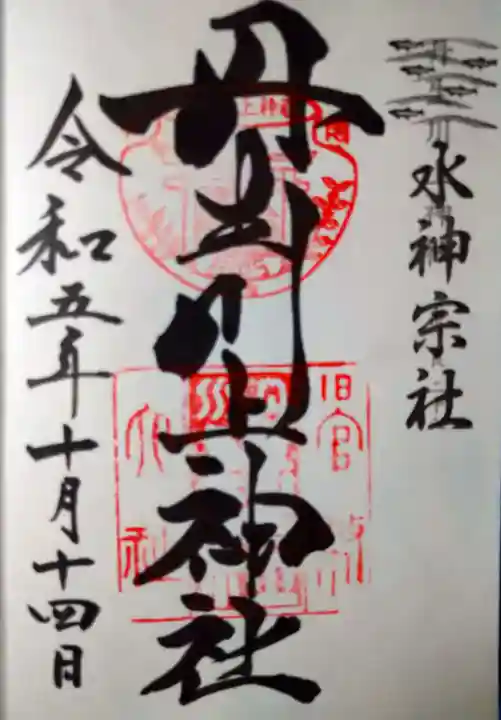 水神宗社
丹生川上神社
旧官
大社
令和五年十月十四日